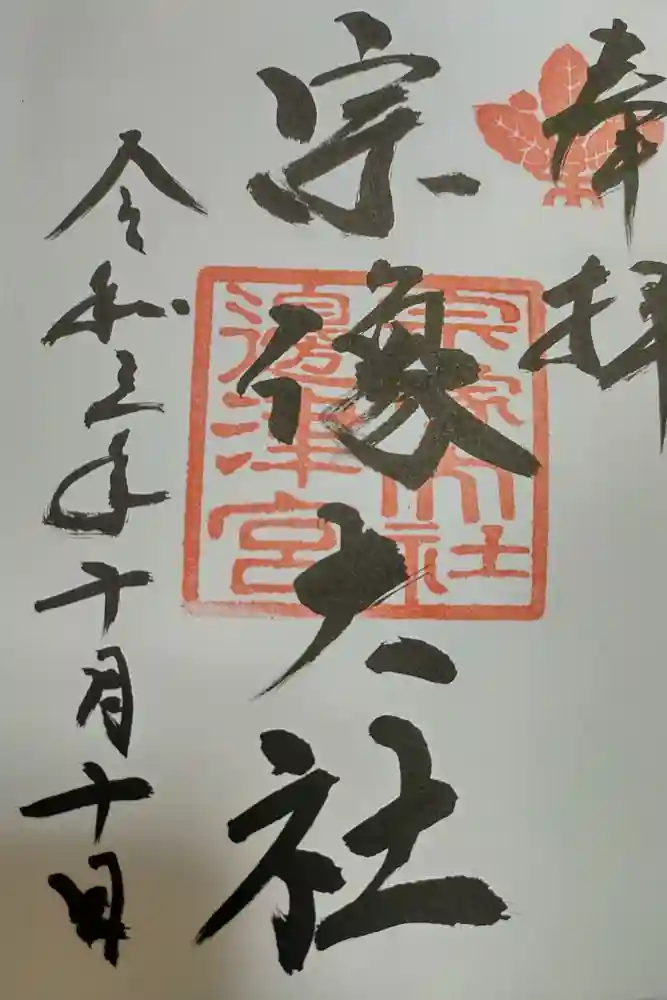 奉拝
宗像大社
宗像大社
邊津宮
令和三年十月十日